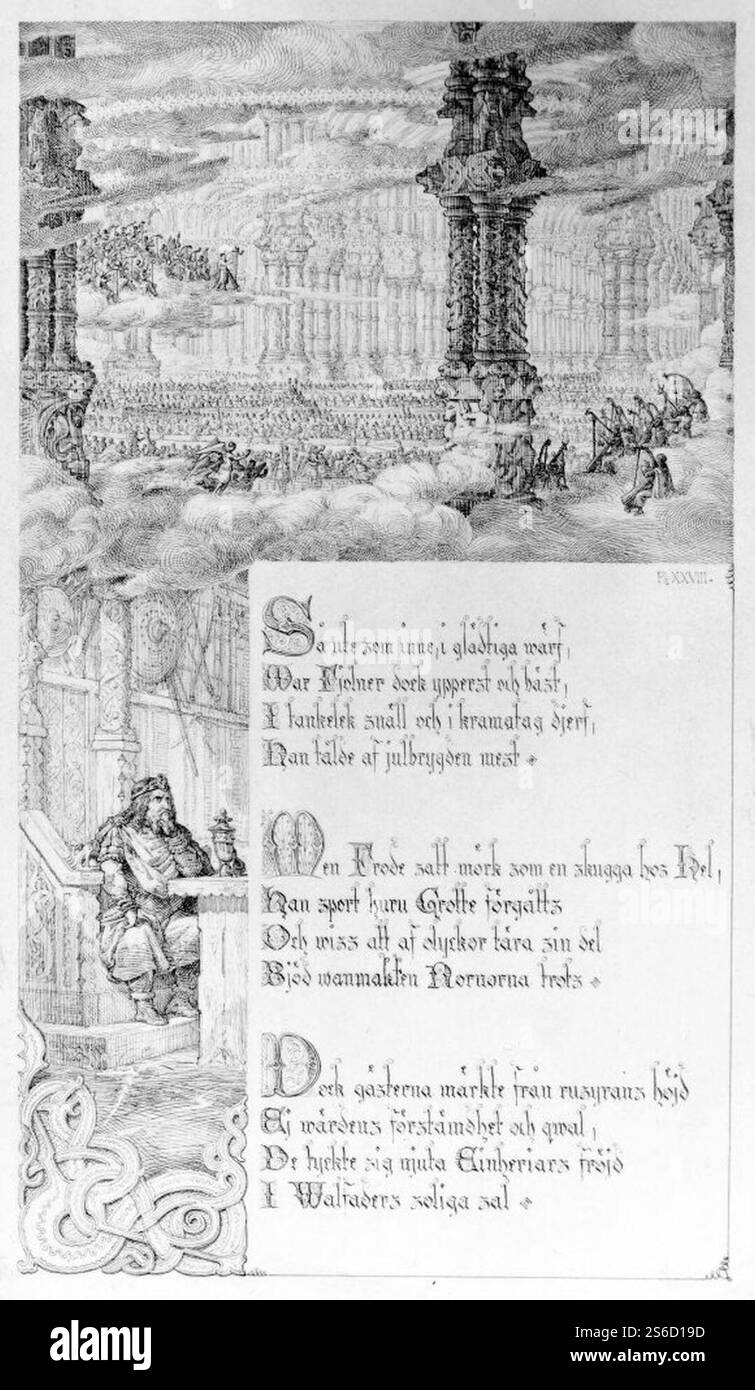 Pl. XXVIII.
Så ute som inne, i glädtiga wärf,
War Fjolner dock ypperst och bäst,
I tankelek snäll och i kramatag djerf,
Han tålde af julbrygden mest
Men Frode satt mörk som en skugga hos Hel,
Han sport huru Grotte förgätts
Och wiss att af olyckor tära sin del
Bjöd wanmakten Nornorna trots
Dock gästerna märkte från rusyrans höjd
Ej wärdens förstämdhet och qwal,
De tyckte sig njuta Einheriars fröjd
I Walfaders soliga sal
alamy
Image ID: 2S6D19D
www.alamy.com